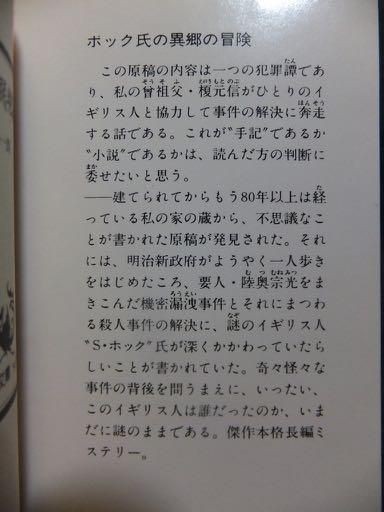 ホック氏の異郷の冒険
この原稿の内容は一つの犯罪譚であ
り、私の曾祖父・榎元信がひとりのイ
ギリス人と協力して事件の解決に奔走
する話である。これが〝手記〟であるか
〝小説〟であるかは、読んだ方の判断に
委せたいと思う。
――建てられてからもう80年以上は経
っている私の家の蔵から、不思議なこ
とが書かれた原稿が発見された。それ
には、明治新政府がようやく一人歩き
をはじめたころ、要人・陸奥宗光をま
きこんだ機密漏洩事件とそれにまつわ
る殺人事件の解決に、謎のイギリス人
〝S・ホック〟氏が深くかかわっていたら
しいことが書かれていた。奇々怪々な
事件の背後を問うまえに、いったい、
このイギリス人は誰だったのか、いま
だに謎のままである。傑作本格長編ミ
ステリー。